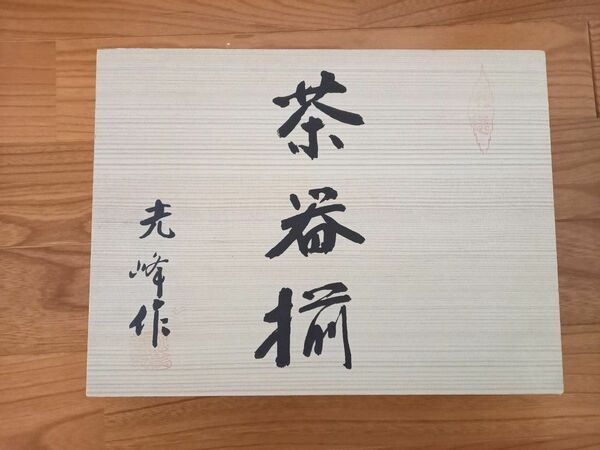 茶器揃
光峰作